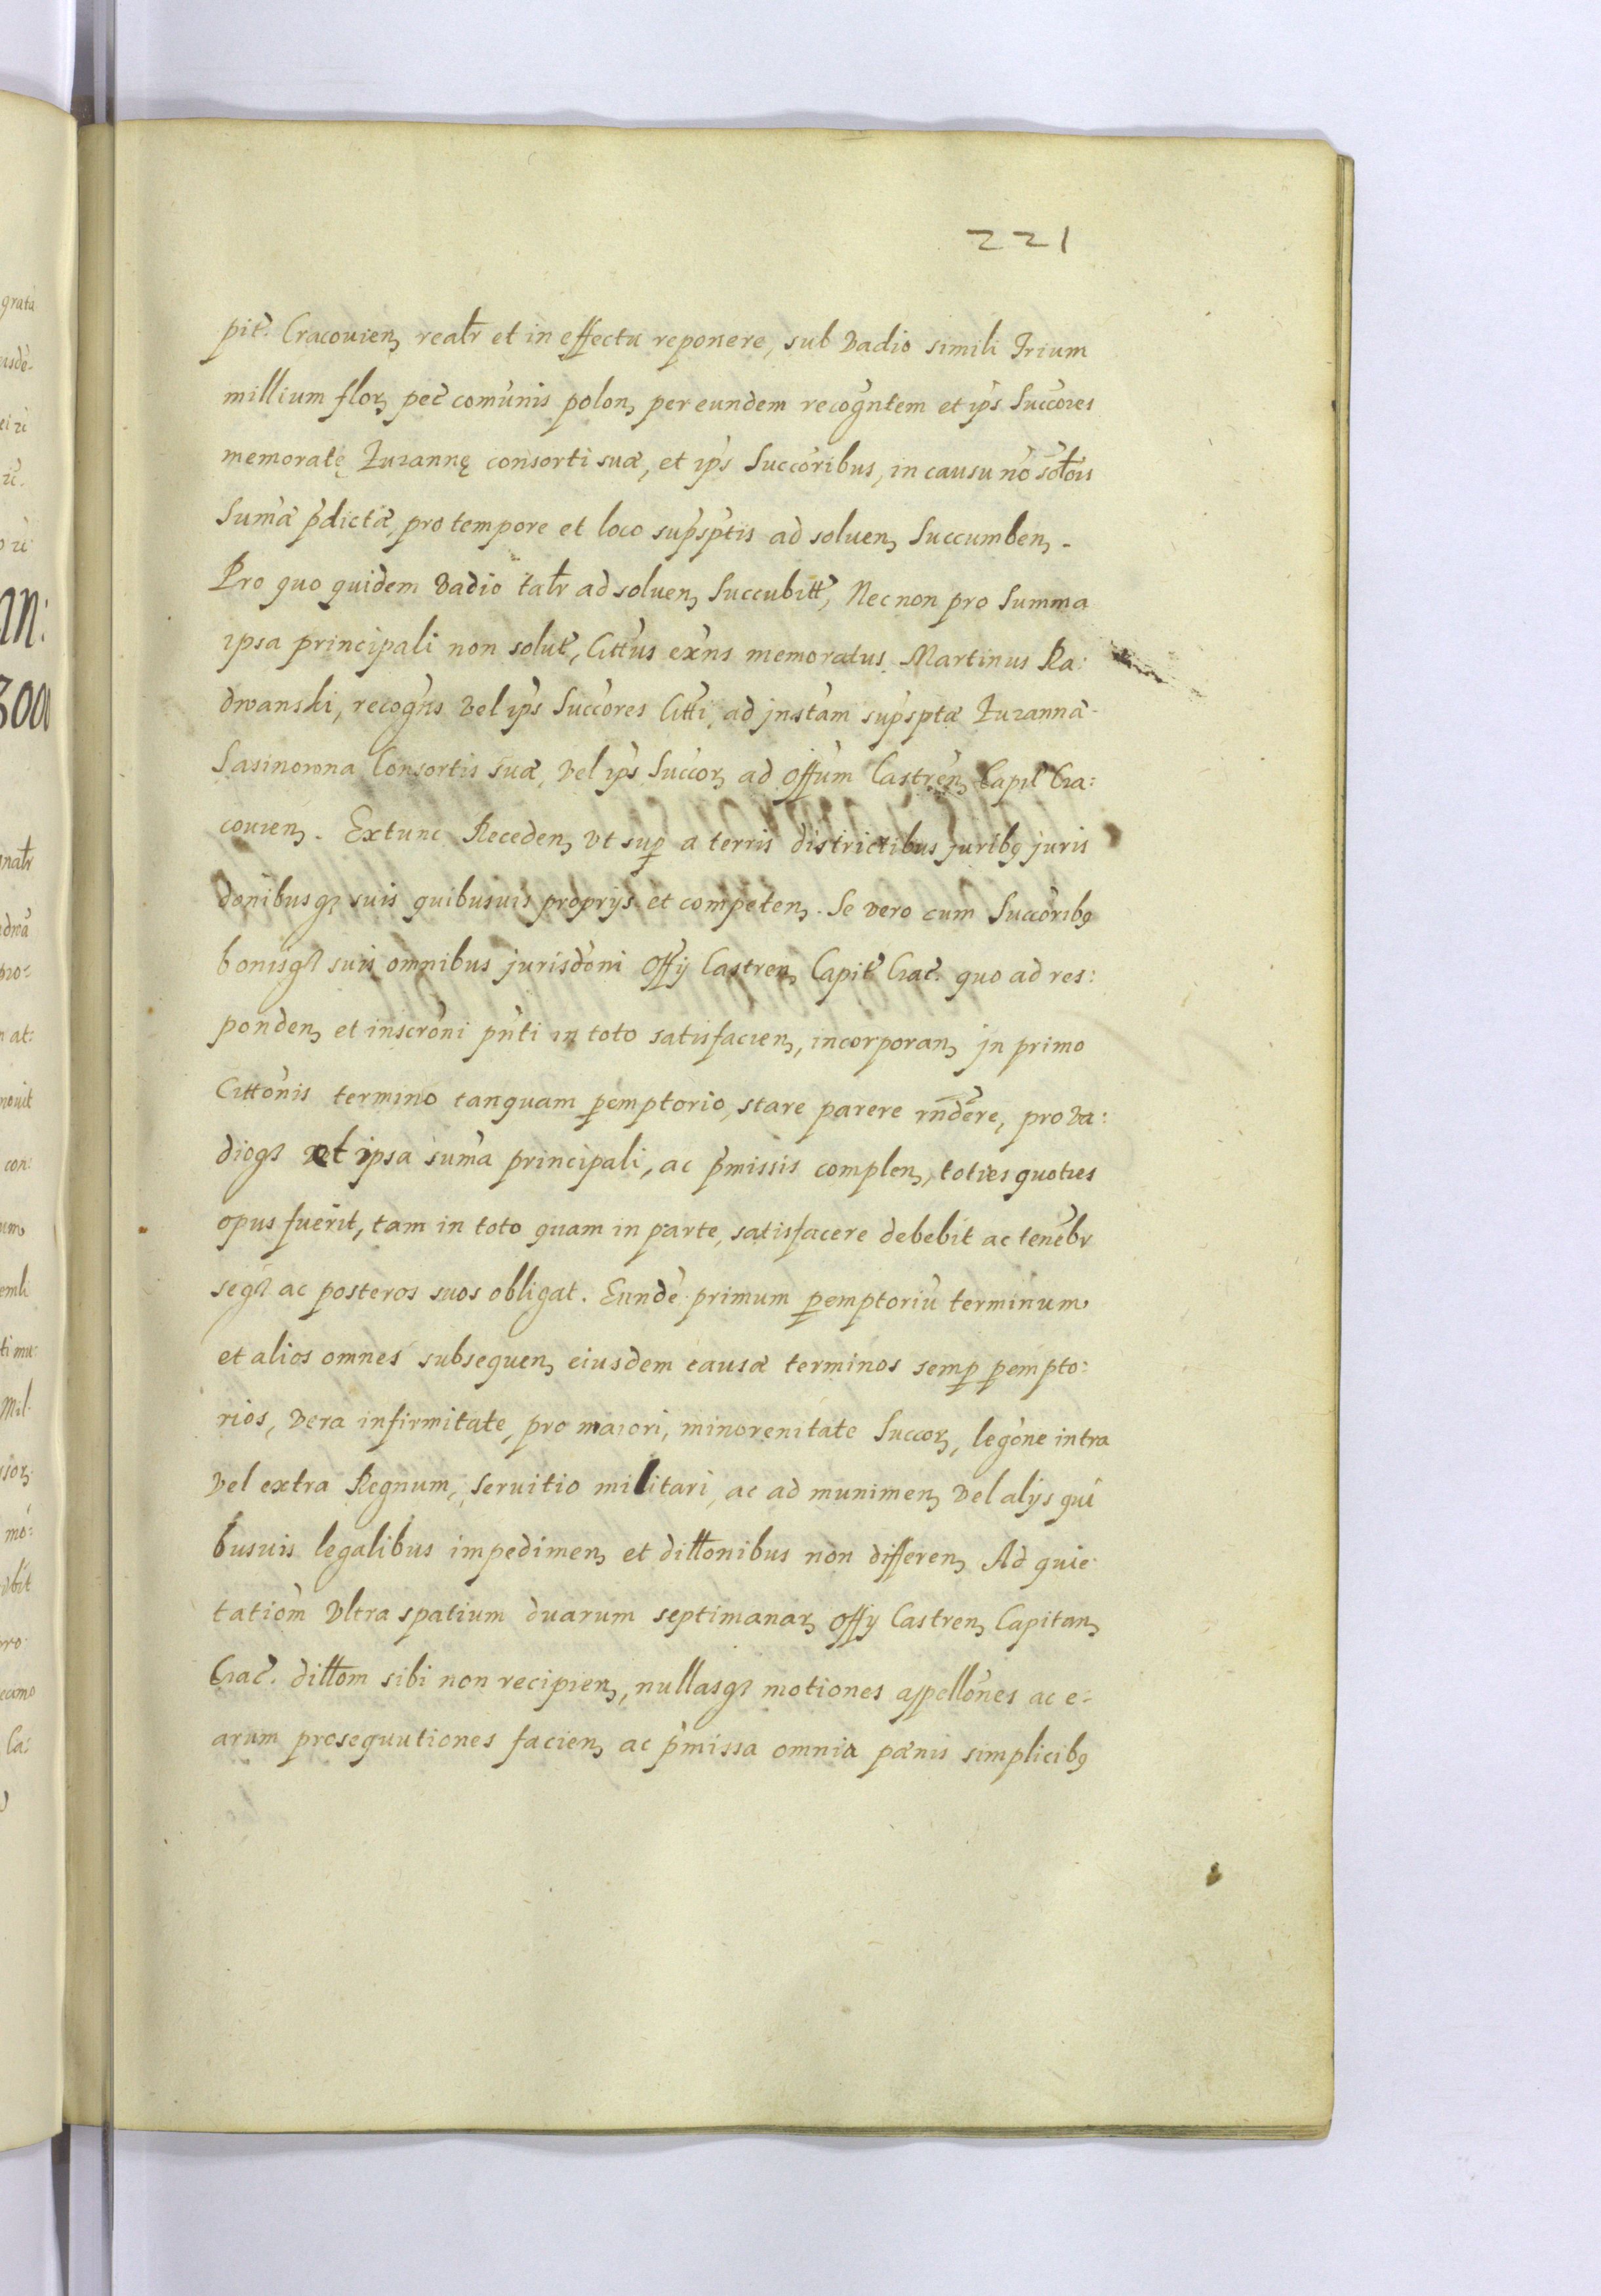 221
pit̃. Cracouien̨ realr̃ et in effectu reponere, sub vadio simili Trium
millium flor̨ pec̃ comũnis polon̨ per eundem recogñtem et ip̃s Succõres
memoratę Zuzannę consorti suæ, et ip̃s Succõribus, in causu nõ sol̃ois
Sum̃æ p̃dictæ, pro tempore et loco sup̃sp̃tis ad soluen̨ Succumben̨.
Pro quo quidem vadio talr̃ ad soluen̨ Succubitt̃, Nec non pro Summa
ipsa principali non solut̃, Citt̃us exñs memoratus Martinus Ra:
dwanski, recogñs vel ip̃s Succõres Citt̃i, ad jnstãm sup̃sptæ Zuzannã
Sasinowna Consortis suæ, vel ip̃s Succõr̨ ad Offũm Castreñ̨ Capit̃ Cra:
couien̨. Extunc Receden̨ vt sup̱ a terris districtibus juribꝯ juris
dõnibusqꝫ suis quibusuis proprijs et competen̨. Se vero cum Succõribꝯ
bonisqꝫ suis omnibus jurisdõni Offij Castren̨ Capit̃ Crac̃. quo ad res:
ponden̨ et inscrõni pñti in toto satisfacien̨, incorporan̨ jn primo
Cittõnis termino tanquam p̱emptorio, stare parere rñdẽre, pro va:
dioqꝫ et ipsa sum̃a principali, ac p̃missis complen̨, toties quoties
opus fuerit, tam in toto quam in parte, satisfacere debebit ac tenẽbr
seqꝫ ac posteros suos obligat. Eundẽ primum p̱emptoriũ terminum
et alios omnes subsequen̨ eiusdem causæ terminos semp̱ p̱empto:
rios, vera infirmitate, pro maiori, minorenitate Succor̨, legõne intra
vel extra Regnum, Seruitio militari, ac ad munimen̨ vel alijs qui
busuis legalibus impedimen̨ et dilt̃onibus non differen̨ Ad quie
tatiom̃ vltra spatium duarum septimanar̨ Offij Castren̨ Capitan̨
Crac̃. dilt̃om sibi non recipien̨, nullasqꝫ motiones appellõnes ac e:
arum prosequutiones facien̨ ac p̃missa omnia pænis simplicibꝯ